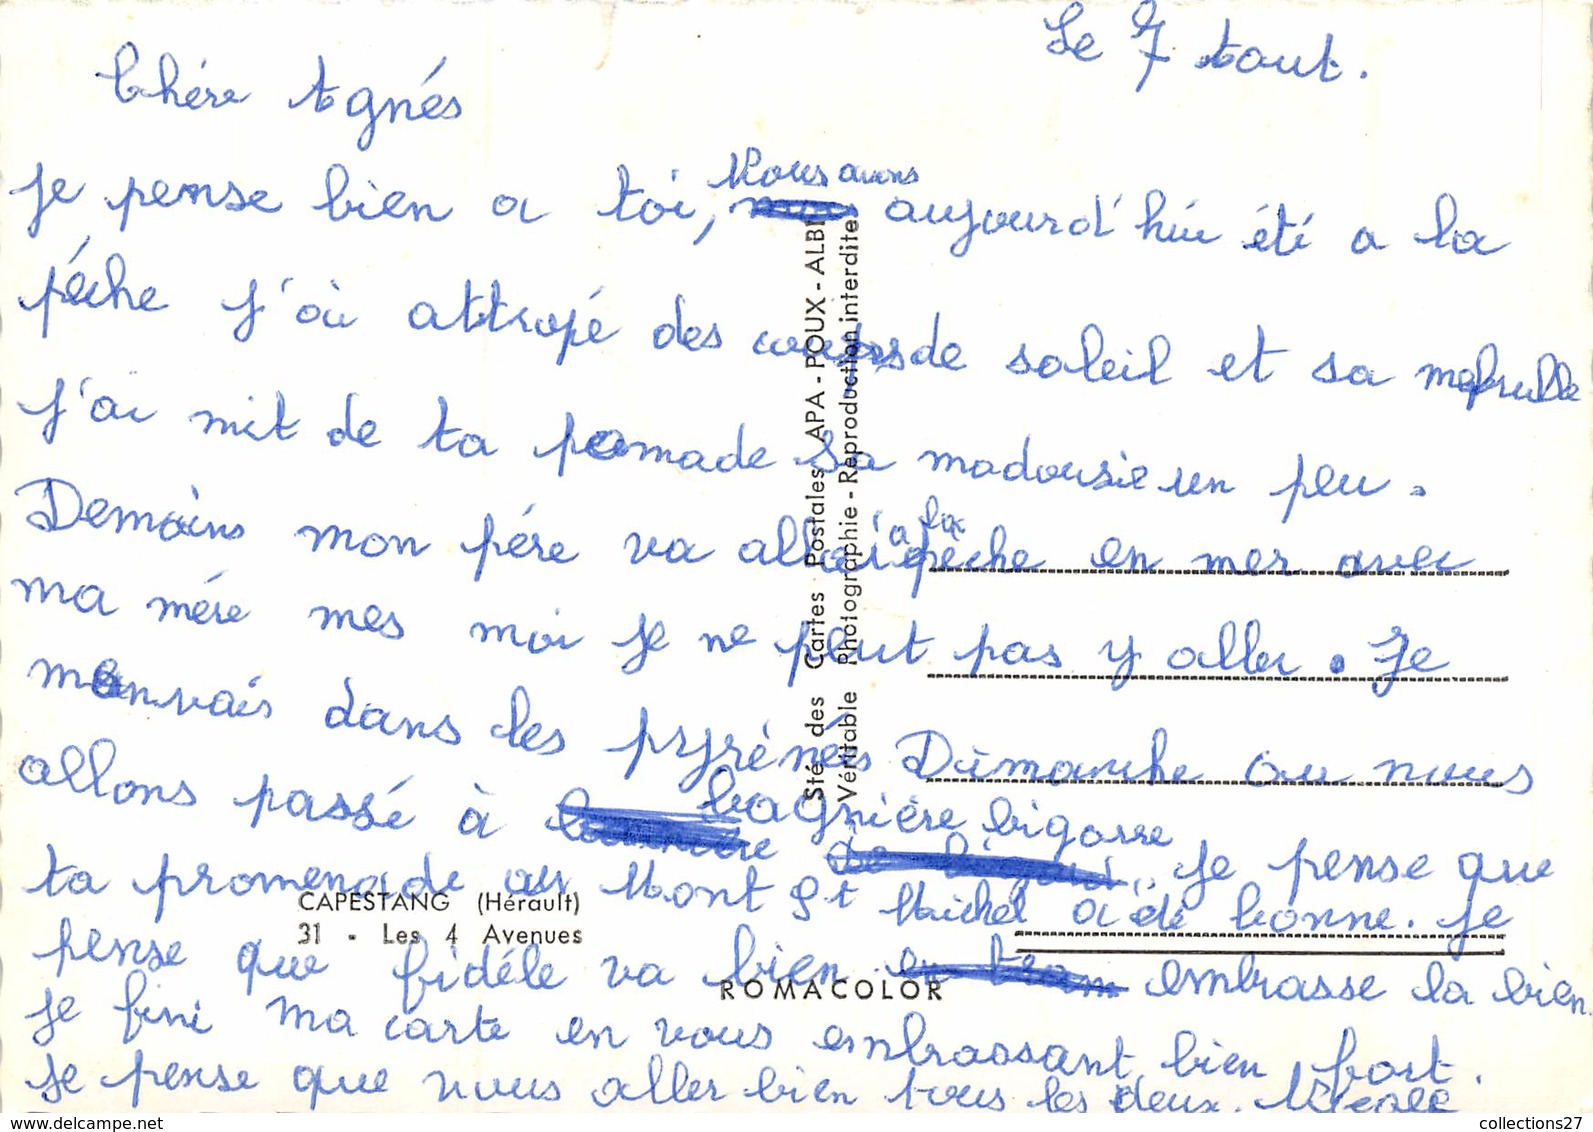 Le 7 Aout.
Chére Agnés
Je pense bien a toi, Nous avons aujourd'hui été a la
pêche J'ai attropé des coups de soleil et sa me brulle
J'ai mit de ta pomade sa m'adousie un peu.
Demains mon pére va allai a la pêche en mer avec
ma mére mes moi je ne peut pas y aller. Je
m'envais dans les pyrénées Dimanche ou nous
allons passé à bagnière bigorre je pense que
ta promenade au Mont St Michel a été bonne. Je
pense que fidéle va bien embrasse la bien
Je fini ma carte en vous embrassant bien fort.
Je pense que vous aller bien tous les deux. Nicole
CAPESTANG (Hérault)
31 - Les 4 Avenues
ROMACOLOR
Sté des Cartes Postales APA-POUX-ALBI
Véritable Photographie - Reproduction interdite
collections27